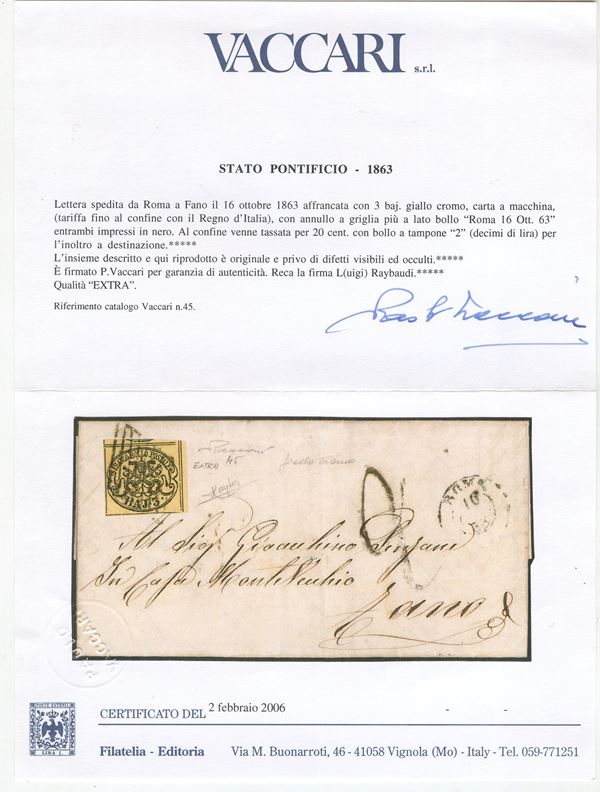 VACCARI s.r.l.
STATO PONTIFICIO - 1863
Lettera spedita da Roma a Fano il 16 ottobre 1863 affrancata con 3 baj. giallo cromo, carta a macchina,
(tariffa fino al confine con il Regno d'Italia), con annullo a griglia più a lato bollo “Roma 16 Ott. 63”
entrambi impressi in nero. Al confine venne tassata per 20 cent. con bollo a tampone “2” (decimi di lira) per
l'inoltro a destinazione.*****
L'insieme descritto e qui riprodotto è originale e privo di difetti visibili ed occulti.*****
È firmato P.Vaccari per garanzia di autenticità. Reca la firma L(uigi) Raybaudi.*****
Qualità “EXTRA”.
Riferimento catalogo Vaccari n.45.
BAJ. 3
EXTRA 45
giallo cromo
ROMA
16
63
Al Sigr Gioacchino
In Casa MonteVecchio
Fano
PAOLO VACCARI
POSTE ESTENSI
LIRA 1.
CERTIFICATO DEL 2 febbraio 2006 - -
Filatelia - Editoria Via M. Buonarroti, 46 - 41058 Vignola (Mo) - Italy - Tel. 059-771251